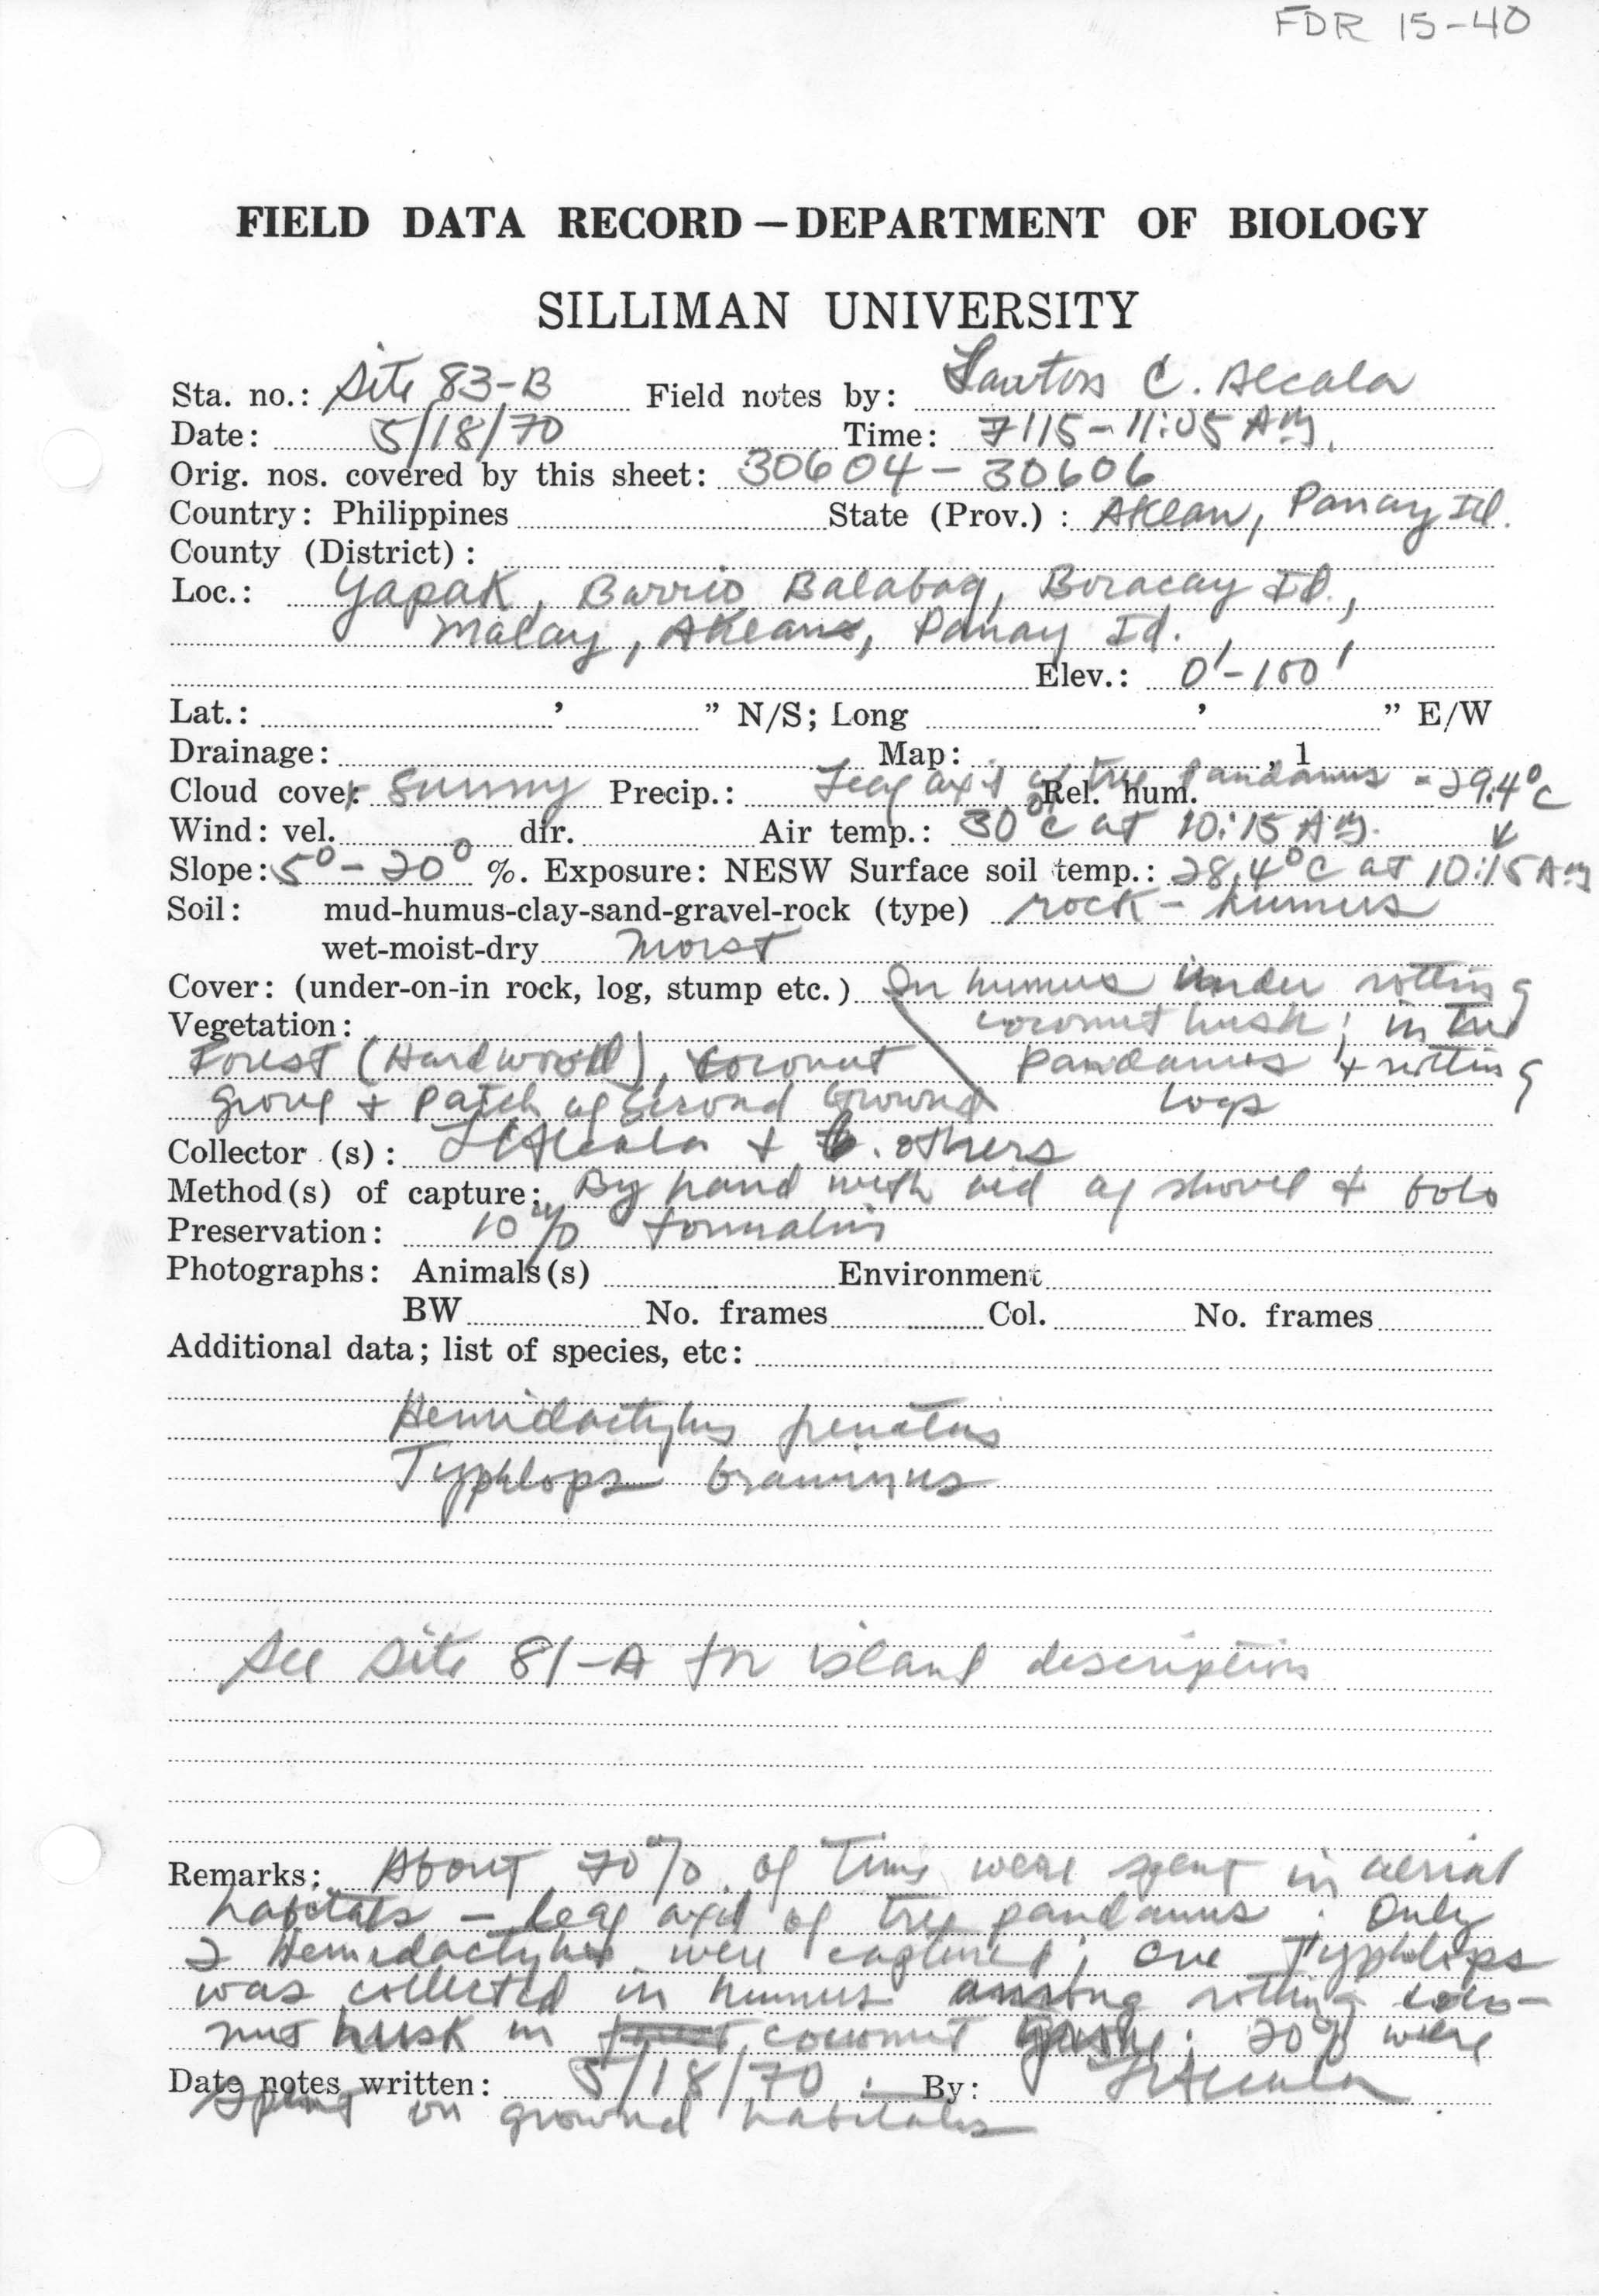 FDR 15-40
FIELD DATA RECORD — DEPARTMENT OF BIOLOGY
SILLIMAN UNIVERSITY
Sta. no.: Site 83-B Field notes by: Lawton C. Alcala
Date: 5/18/70 Time: 7:15-11:05 AM.
Orig. nos. covered by this sheet: 30604 - 30606
Country: Philippines State (Prov.) : Aklan, Panay Id.
County (District) :
Loc.: Yapak, Barrio Balabag, Boracay Id.,
Malay, Aklan, Panay Id.
Elev.: 0'-100'
Lat.: ' " N/S; Long ' " E/W
Drainage: Map: , 1
Cloud cover: Sunny Precip.: Leaf axis of tree Pandanus = 29.4°C Rel. hum.
Wind: vel. dir. Air temp.: 30°C at 10:15 AM.
Slope: 5° - 20° %. Exposure: NESW Surface soil temp.: 28.4°C at 10:15 AM
Soil: mud-humus-clay-sand-gravel-rock (type) rock - humus
wet-moist-dry moist
Cover: (under-on-in rock, log, stump etc.) In humus under rotting
Vegetation: coconut husk; in tree
Forest (Hardwood), coconut Pandanus + rotting
grove + patch of second growth logs
Collector (s): LCAlcala + 6 others
Method(s) of capture: By hand with aid of shovel + bolo
Preservation: 10% formalin
Photographs: Animals(s) Environment
BW No. frames Col. No. frames
Additional data; list of species, etc:
Hemidactylus frenatus
Typhlops braminus
See Site 81-A for island description
Remarks: About 70% of time were spent in aerial
habitats - leaf axil of tree pandanus. Only
2 Hemidactylus were captured; one Typhlops
was collected in humus among rotting coco-
nut husk in coconut grove; 20% were
Date notes written: 5/18/70. By: LCAlcala
spent on ground habitats